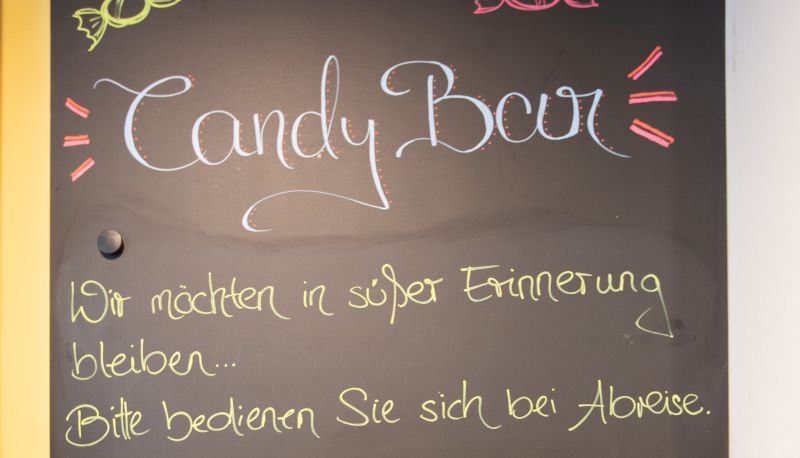 Candy Bar
Wir möchten in süßer Erinnerung
bleiben...
Bitte bedienen Sie sich bei Abreise.